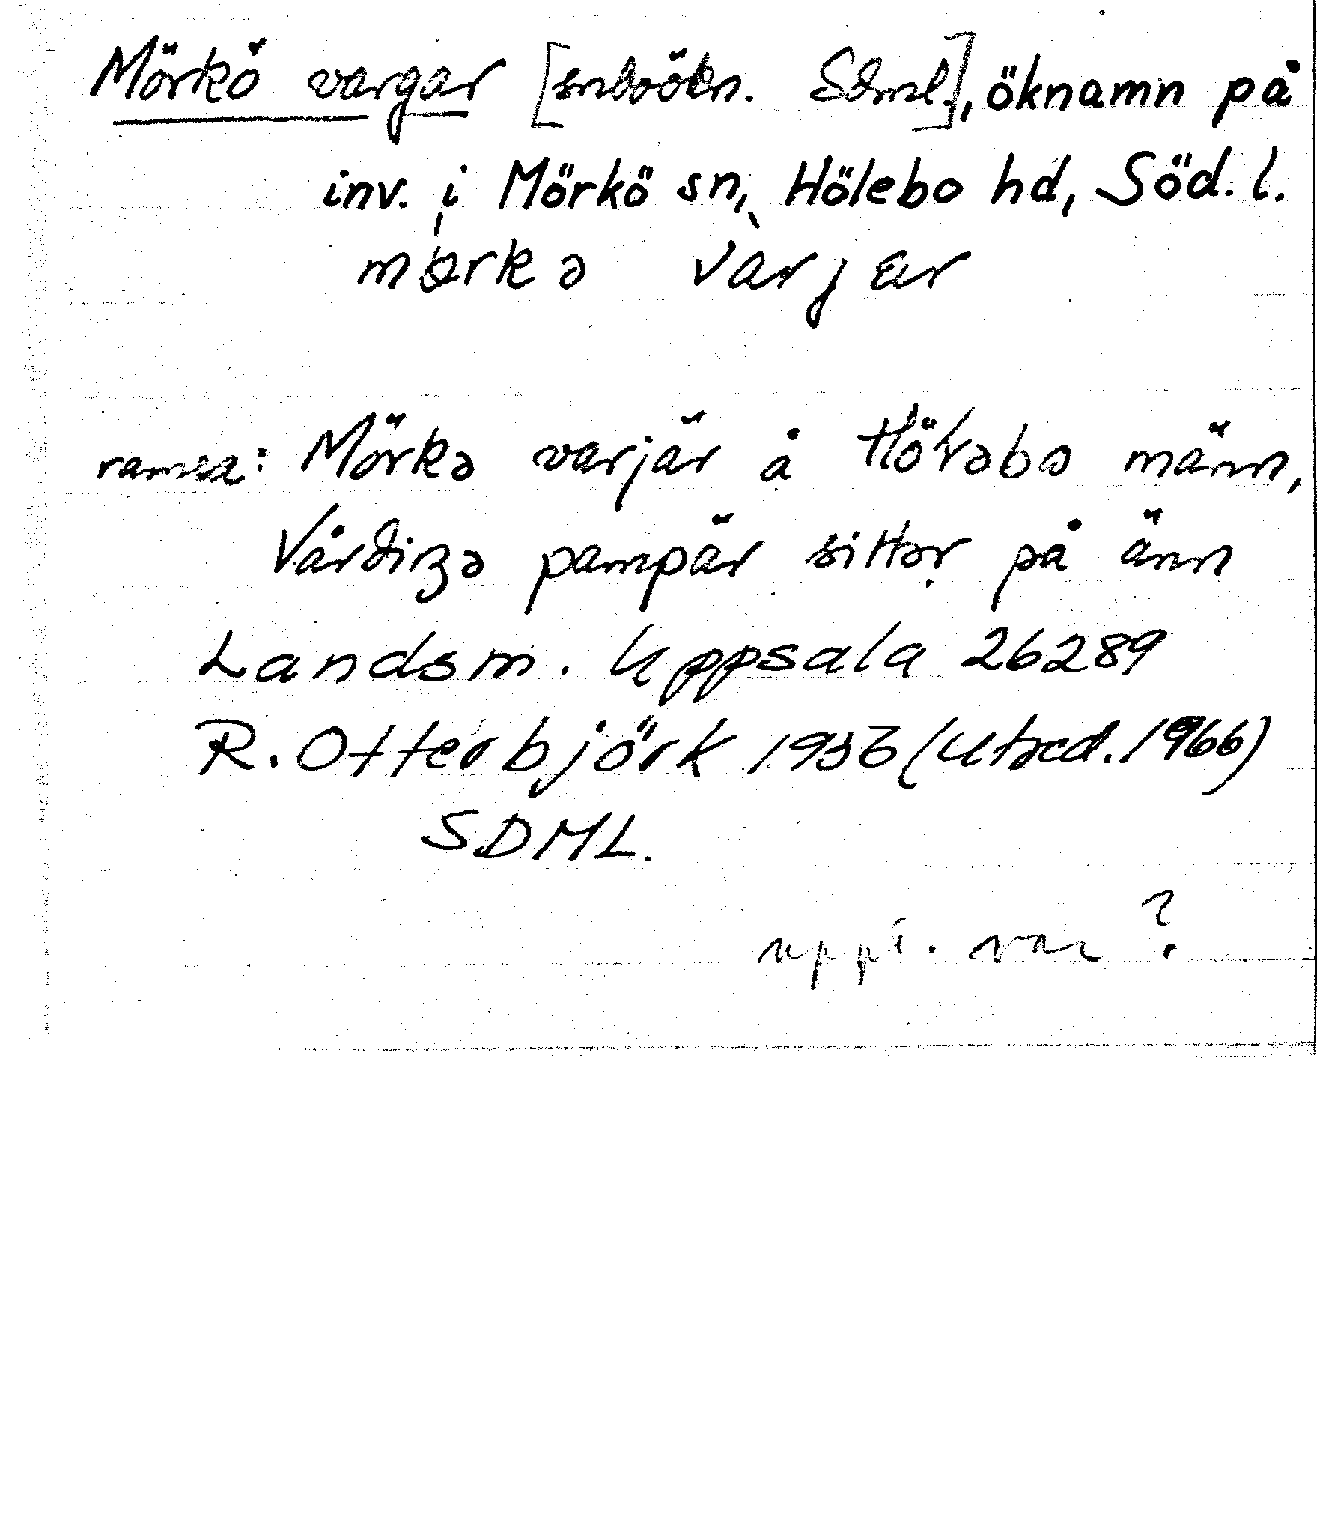 Mörkö vargar [snboökn. Sdml.], öknamn på
inv. i Mörkö sn, Hölebo hd, Söd. l.
varjar
ramsa: Mörkə varjär å Höləbo männ,
pampär sittər på änn
Landsm. Uppsala 26289
R. Otterbjörk 1936 (Utxcd. 1966)
SDML.
uppt. var?